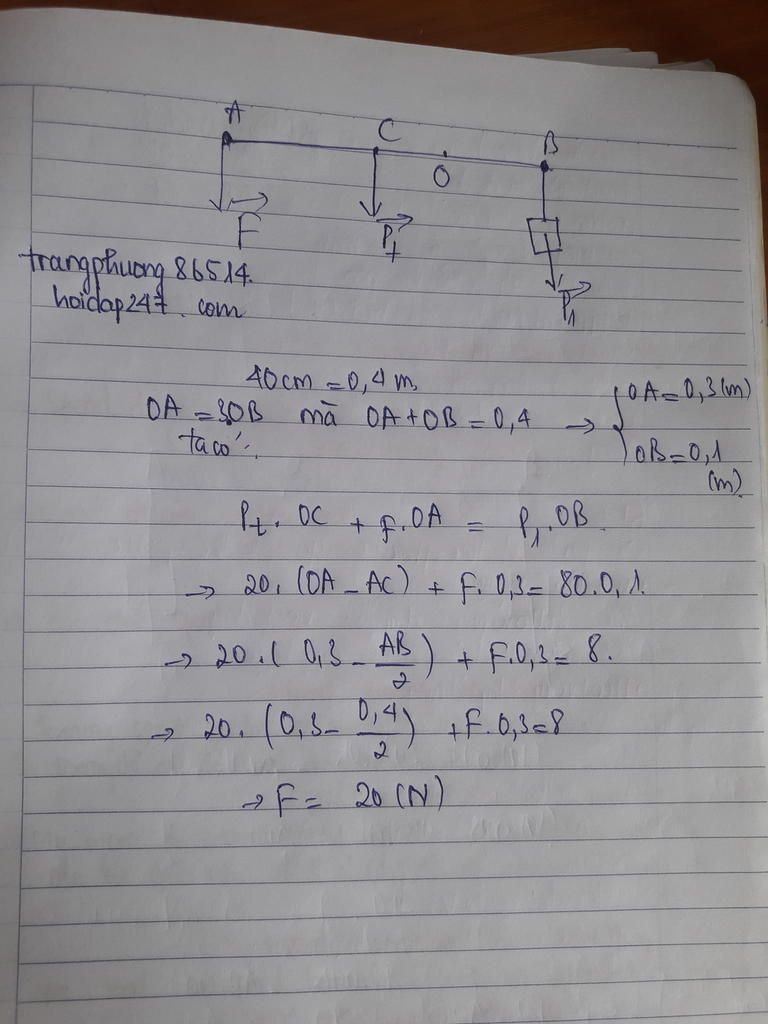 A
C
B
O
F
P_t
P_1
trangphuong 86514.
hoidap247.com
40cm = 0,4 m
OA = 3OB mà OA + OB = 0,4 → { OA = 0,3 (m)
OB = 0,1 (m)
ta có:
P_t . OC + F.OA = P_1.OB
→ 20. (OA - AC) + F. 0,3 = 80.0,1.
→ 20.( 0,3 - AB/2 ) + F.0,3 = 8.
→ 20. (0,3 - 0,4/2) + F.0,3=8
→ F = 20 (N)